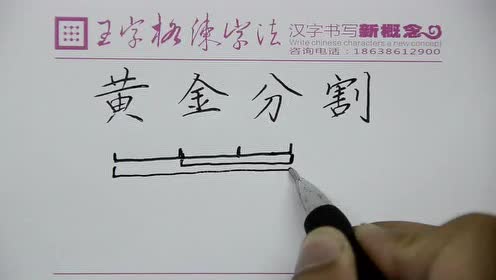 王字格练字法
汉字书写新概念
Write chinese characters a new concept
咨询电话：18638612900
黄金分割